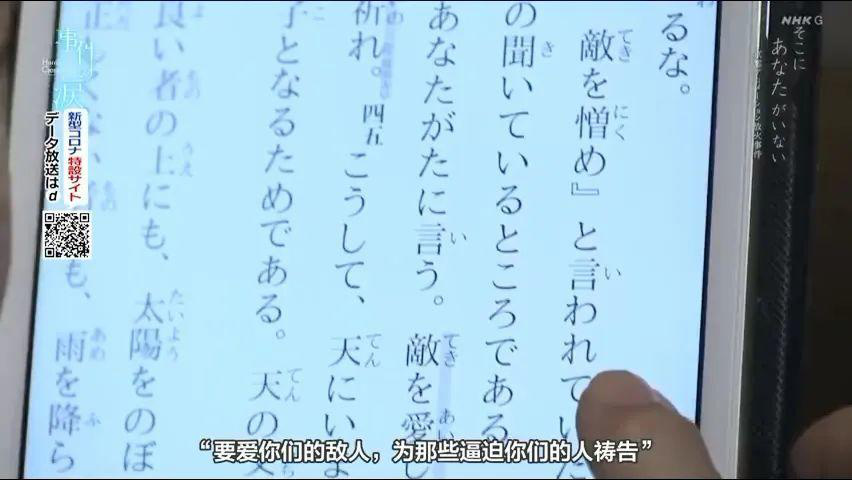 NHK G
そこに
あなたがいない
京都アニメーション放火事件
るな。
敵を憎め』と言われていた
の聞いているところである
あなたがたに言う。敵を愛し
祈れ。四五 こうして、天にいま
子となるためである。天の父
良い者の上にも、太陽をのぼ
も、雨を降ら
事件の涙
新型コロナ 特設サイト
データ放送はd
“要爱你们的敌人，为那些逼迫你们的人祷告”